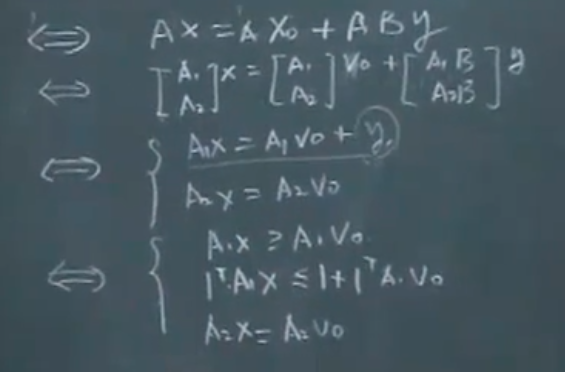 ⇔ Ax = A X₀ + A B y
⇔ [A₁ A₂] x = [A₁ A₂] V₀ + [A₁B A₂B] y
⇔ { A₁x = A₁V₀ + y,
A₂x = A₂V₀
⇔ { A₁x ≥ A₁V₀.
1ᵀA₁x ≤ 1 + 1ᵀA₁V₀
A₂x = A₂V₀